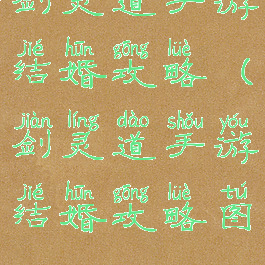 剑灵道手游
jié hūn gōng lüè
结婚攻略（
jiàn líng dào shǒu yóu
剑灵道手游
jié hūn gōng lüè tú
结婚攻略图